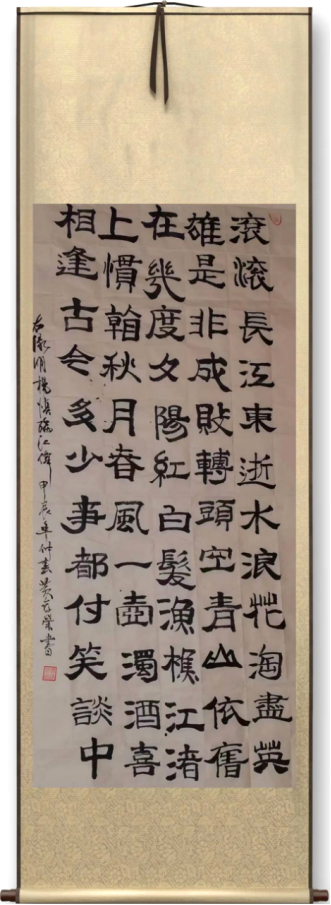 滾滾長江東逝水浪花淘盡英
雄是非成敗轉頭空青山依舊
在幾度夕陽紅白髮漁樵江渚
上慣看秋月春風一壺濁酒喜
相逢古今多少事都付笑談中
右錄明楊慎臨江僊甲辰年仲春黃元榮書